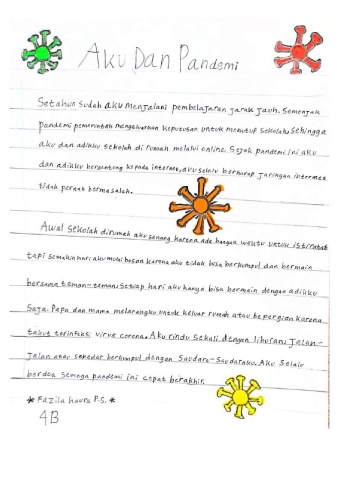 Aku Dan Pandemi
Setahun sudah aku menjalani pembelajaran jarak jauh. Semenjak
pandemi pemerintah mengeluarkan keputusan untuk menutup sekolah, sehingga
aku dan adikku sekolah di rumah melalui online. Sejak pandemi ini aku
dan adikku bergantung kepada internet, aku selalu berharap jaringan internet
tidak pernah bermasalah.
Awal sekolah dirumah aku senang karena ada banyak waktu untuk istirahat
tapi semakin hari aku mulai bosan karena aku tidak bisa berkumpul dan bermain
bersama teman-teman. Setiap hari aku hanya bisa bermain dengan adikku
saja. Papa dan mama melarangku untuk keluar rumah atau bepergian karena
takut terinfeksi virus corona. Aku rindu sekali dengan liburan, jalan-
jalan atau sekedar berkumpul dengan saudara-saudaraku. Aku selalu
berdoa semoga pandemi ini cepat berakhir.
* Fazila P.S. *
4B